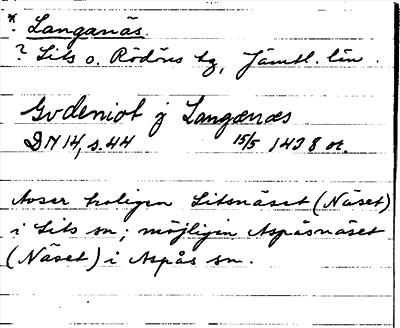 * Langanäs.
? Lits o. Rödöns tg, Jämtl. län.
Gudeniot j Langænæs
DN 14, s. 44 15/5 1438 or.
Avser troligen Litsnäset (Näset)
i Lits sn; möjligen Aspåsnäset
(Näset) i Aspås sn.